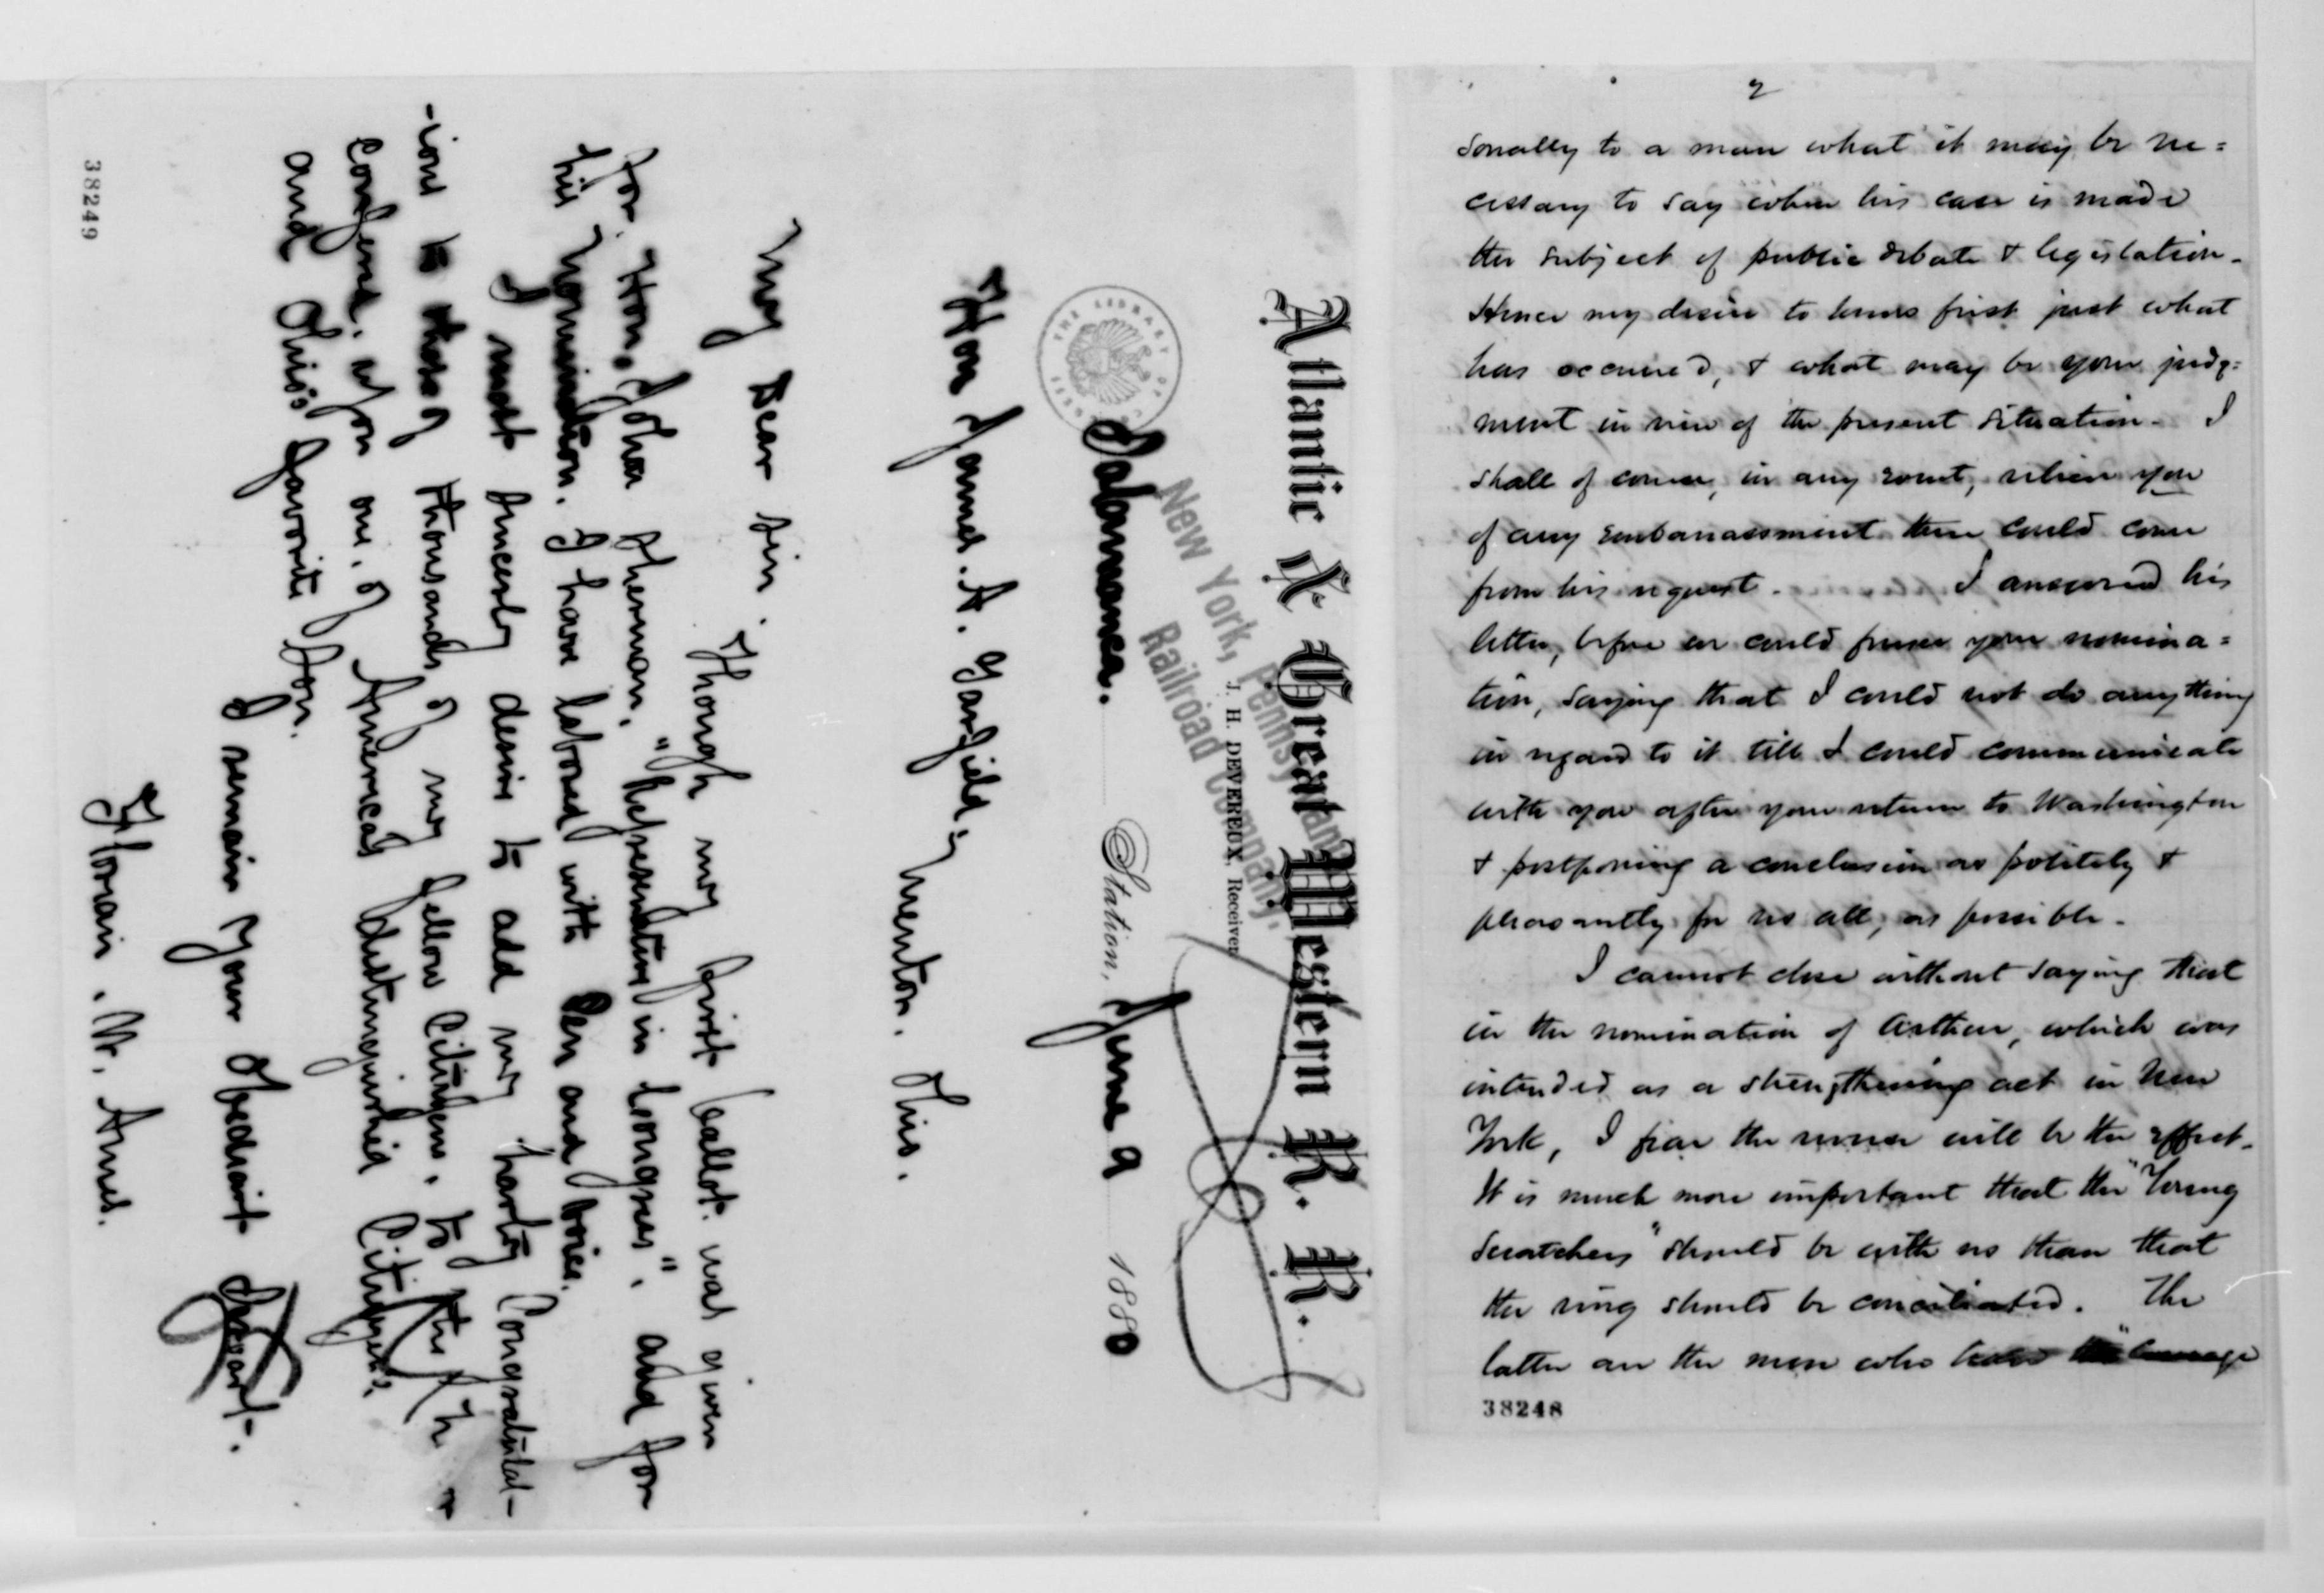 Atlantic & Great Western R. R.
J. H. DEVEREUX, Receiver
New York, Pennsylvania
Railroad Company.
THE LIBRARY OF CONGRESS
Salamanca. Station, June 9 1880
Hon James. A. Garfield; Mentor. Ohio.
My Dear Sir. Though my first ballot. was given
for Hon. John Sherman, "Representative in Congress", and for
his Nomination. I have labored with Pen and Voice.
I most sincerely desire to add my hearty Congratulat-
-ions to those of thousands of my fellow Citizens, to the
confered. upon one. of Americas distinguished Citizens,
and Ohio's favorite Son.
I remain your Obedient Servant.
Florain. W. Ames.
38249
2
sonally to a man what it may be ne=
cessary to say when his case is made
the subject of public debate & legislation.
Hence my desire to know first just what
has occurred, & what may be your judg=
ment in view of the present situation. I
shall of course, in any event, relieve you
of any embarrassment there could come
from his request. I answered his
letter, before we could foresee your nomina=
tion, saying that I could not do anything
in regard to it till I could communicate
with you after your return to Washington
& postponing a conclusion as politely &
pleasantly for us all, as possible.
I cannot close without saying that
in the nomination of Arthur, which was
intended as a strengthening act in New
York, I fear the reverse will be the effect.
It is much more important that the "Young
Scratchers" should be with us than that
the ring should be conciliated. The
latter are the men who have the "courage
38248